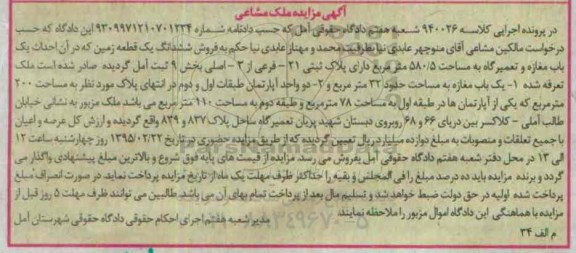 آگهی مزایده ملک مشاعی
در پرونده اجرایی کلاسه ۹۴۰۰۲۶ شعبه هفتم دادگاه حقوقی آمل که حسب دادنامه شماره ۹۳۰۹۹۷۱۲۱۰۷۰۱۲۳۴ این دادگاه که حسب
درخواست مالکین مشاعی آقای منوچهر عابدی نیا بطرفیت محمد و مهناز عابدی نیا حکم به فروش ششدانگ یک قطعه زمین که در آن احداث یک
باب مغازه و تعمیرگاه به مساحت ۵۸۰/۵ متر مربع دارای پلاک ثبتی ۲۱ - فرعی از ۳ - اصلی بخش ۹ ثبت آمل گردیده صادر شده است ملک
تعرفه شده ۱- یک باب مغازه به مساحت حدود ۳۲ متر مربع و ۲- دو واحد آپارتمان طبقات اول و دوم در انتهای پلاک مورد نظر به مساحت ۲۰۰
مترمربع که یکی از آپارتمان ها در طبقه اول به مساحت ۷۸ مترمربع و طبقه دوم به مساحت ۱۱۰ متر مربع می باشد ملک مزبور به نشانی خیابان
طالب آملی - کلاکسر بین دریای ۶۶ و ۶۸ روبروی دبستان شهید پریان تعمیرگاه ساحل پلاک ۸۳۷ و ۸۳۹ واقع گردیده و ارزش کل عرصه و اعیان
با جمیع تعلقات و منصوبات به مبلغ دوازده میلیارد ریال تعیین گردیده که از طریق مزایده حضوری در تاریخ ۱۳۹۵/۰۲/۲۲ روز چهارشنبه ساعت ۱۲
الی ۱۳ در محل دفتر شعبه هفتم دادگاه حقوقی آمل بفروش می رسد، مزایده از قیمت های پایه فوق شروع و بالاترین مبلغ پیشنهادی واگذار می
گردد و برنده مزایده باید ده درصد مبلغ را فی المجلس و بقیه را حداکثر ظرف مهلت یک ماه از تاریخ مزایده پرداخت نماید. در صورت انصراف مبلغ
پرداخت شده اولیه در حق دولت ضبط خواهد شد و تسلیم مال بعد از پرداخت تمام بهای آن می باشد. طالبین می توانند ظرف مهلت ۵ روز قبل از
مزایده با هماهنگی این دادگاه اموال مزبور را ملاحظه نمایند.
مدیر شعبه هفتم اجرای احکام حقوقی دادگاه حقوقی شهرستان آمل
م الف ۳۴